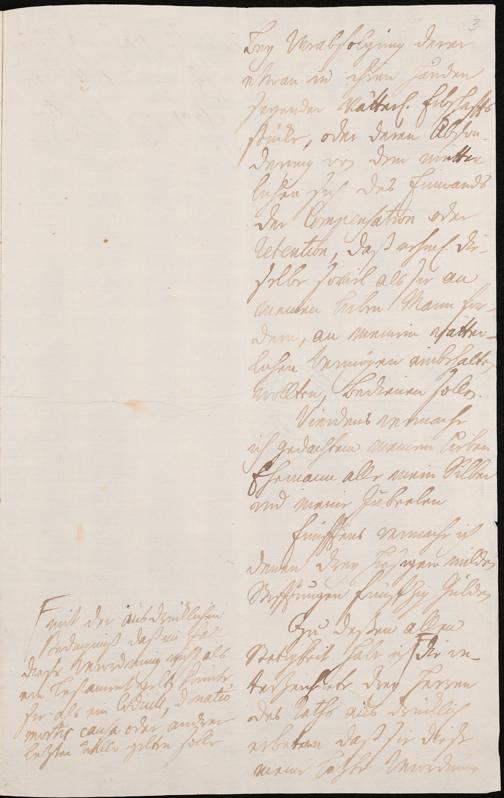 3
Bey Verabfolgung derer
etwan in ihren Handen
seyender Vätterl. Erbschaffts
stücke, oder deren Abson-
derung von dem mütter
lichen sich des Einwands
der Compensation oder
Retention, daß nehml. die-
selbe soviel als sie an
meinen lieben Mann for-
dern, an meinem vätter-
lichen Vermögen einbehalten
wollten, bedienen solle.
Vierdens vermache
ich gedachtem meinem lieben
Ehemann alle mein Silber
und meine Jubeelen
Fünfftens vermache ich
denen drey hiesigen milden
Stifftungen fünffzig Gulden
Zu dessen allen
Stetigkeit habe ich die un-
terzeichnete drey Herren
des Raths ausdrücklich
erbetten daß sie diese
meine letzte Verordnung
mit der ausdrücklichen
Bedingniß daß im Fall
diese Verordnung nicht als
ein Testament gelten könnte
sie als ein Codicill, donatio
mortis causa oder anderer
letzter Wille gelten solle